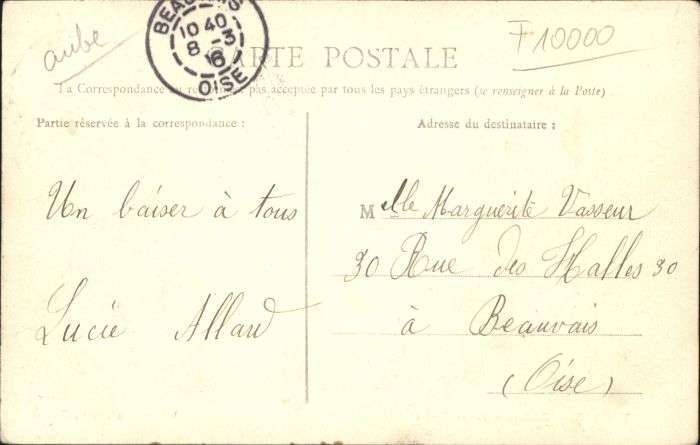 aube
BEAUVAIS
10 40
8 - 3
6
OISE
F10000
CARTE POSTALE
La Correspondance au recto n'est pas acceptée par tous les pays étrangers (se renseigner à la Poste)
Partie réservée à la correspondance :
Un baiser à tous
Lucie Allard
Adresse du destinataire :
Melle Marguerite Vasseur
30 Rue des Halles 30
à Beauvais
(Oise)